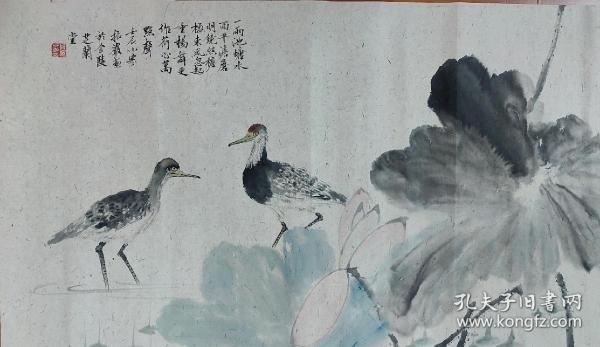 一雨池塘水
面平淡磨
明镜照檐
楹东风忽起
垂杨舞更
作荷心万
点声
壬辰小
于金陵
芝兰
堂
孔夫子旧书网
www.kongfz.com